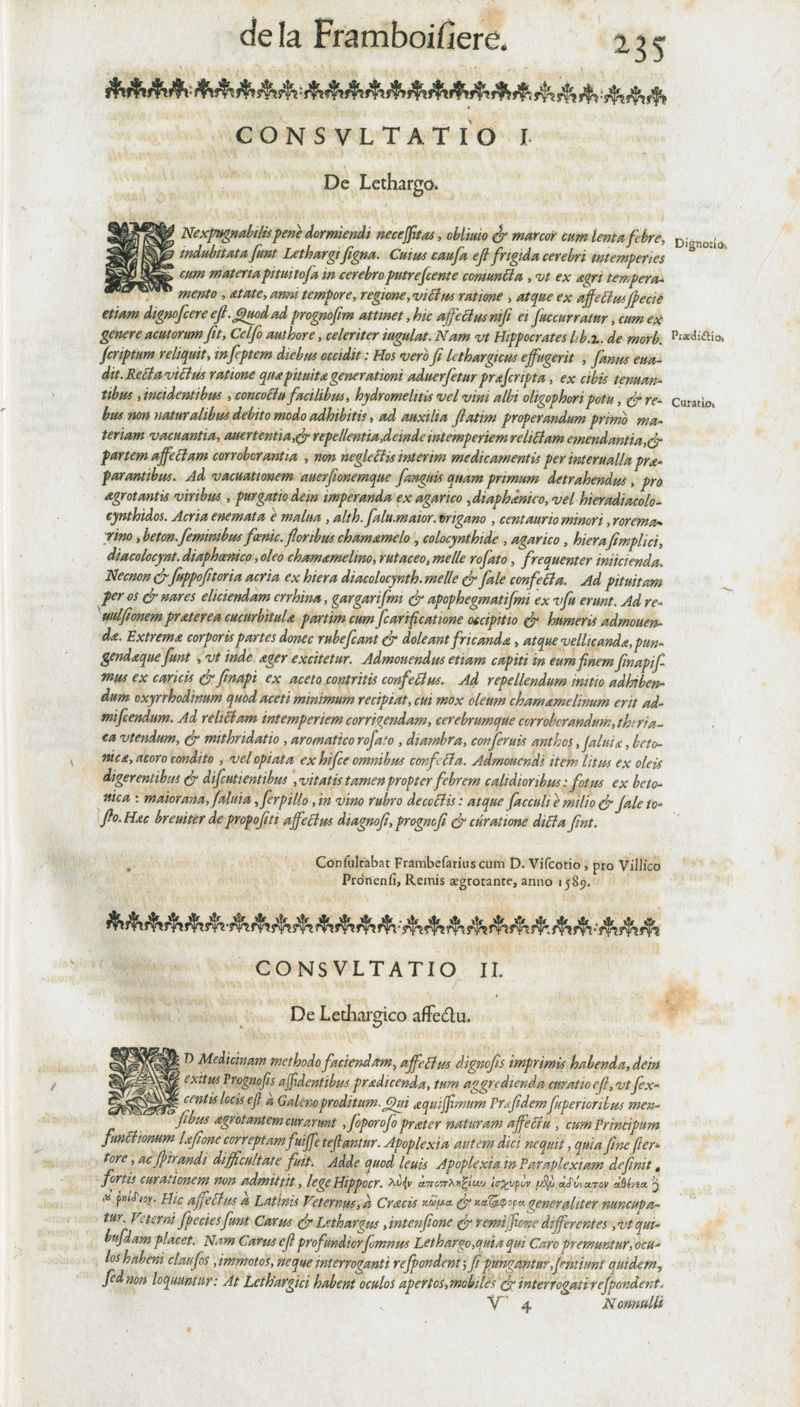 de la Framboiſiere. 235
CONSVLTATIO I.
De Lethargo.
INexpugnabilis penè dormiendi neceſſitas, obliuio & marcor cum lenta febre,
Dignotio.
indubitata ſunt Lethargi ſigna. Cuius cauſa eſt frigida cerebri intemperies
cum materia pituitoſa in cerebro putreſcente coniuncta, vt ex ægri tempera-
mento, ætate, anni tempore, regione, victus ratione, atque ex affectus ſpecie
etiam dignoſcere eſt. Quod ad prognoſim attinet, hic affectus niſi ei ſuccurratur, cum ex
genere acutorum ſit, Celſo authore, celeriter iugulat. Nam vt Hippocrates lib. 2. de morb.
Prædictio.
ſcriptum reliquit, in ſeptem diebus occidit: Hos verò ſi lethargicus effugerit, ſanus eua-
dit. Recta victus ratione quæ pituitæ generationi aduerſetur præſcripta, ex cibis tenuan-
tibus, incidentibus, concoctu facilibus, hydromelitis vel vini albi oligophori potu, & re-
Curatio.
bus non naturalibus debito modo adhibitis, ad auxilia ſtatim properandum primò ma-
teriam vacuantia, auertentia, & repellentia, deinde intemperiem relictam emendantia, &
partem affectam corroborantia, non neglectis interim medicamentis per interualla præ-
parantibus. Ad vacuationem auerſionemque ſanguis quam primum detrahendus, pro
ægrotantis viribus, purgatio dein imperanda ex agarico, diaphœnico, vel hieradiacolo-
cynthidos. Acria enemata è malua, alth. ſalu. maior. origano, centaurio minori, rorema-
rino, beton. ſeminibus fœnic. floribus chamæmelo, colocynthide, agarico, hiera ſimplici,
diacolocynt. diaphœnico, oleo chamæmelino, rutaceo, melle roſato, frequenter iniicienda.
Necnon & ſuppoſitoria acria ex hiera diacolocynth. melle & ſale confecta. Ad pituitam
per os & nares eliciendam errhina, gargariſmi & apophegmatiſmi ex vſu erunt. Ad re-
uulſionem præterea cucurbitulæ partim cum ſcarificatione occipitio & humeris admouen-
dæ. Extremæ corporis partes donec rubeſcant & doleant fricandæ, atque vellicandæ, pun-
gendæque ſunt, vt inde æger excitetur. Admouendus etiam capiti in eum finem ſinapiſ-
mus ex caricis & ſinapi ex aceto contritis confectus. Ad repellendum initio adhiben-
dum oxyrrhodinum quod aceti minimum recipiat, cui mox oleum chamæmelinum erit ad-
miſcendum. Ad relictam intemperiem corrigendam, cerebrumque corroborandum, theria-
ca vtendum, & mithridatio, aromatico roſato, diambra, conſeruis anthos, ſaluiæ, beto-
nicæ, acoro condito, vel opiata ex hiſce omnibus confecta. Admouendi item litus ex oleis
digerentibus & diſcutientibus, vitatis tamen propter febrem calidioribus: fotus ex beto-
nica: maiorana, ſaluia, ſerpillo, in vino rubro decoctis: atque ſacculi è milio & ſale to-
ſto. Hæc breuiter de propoſiti affectus diagnoſi, prognoſi & curatione dicta ſint.
Conſultabat Frambeſarius cum D. Viſcotio, pro Villico
Pronenſi, Remis ægrotante, anno 1589.
CONSVLTATIO II.
De Lethargico affectu.
AD Medicinam methodo faciendam, affectus dignoſis imprimis habenda, dein
exitus Prognoſis aſſidentibus prædicenda, tum aggredienda curatio eſt, vt ſex-
centis locis eſt à Galeno proditum. Qui æquiſſimum Præſidem ſuperioribus men-
ſibus ægrotantem curarunt, ſoporoſo præter naturam affectu, cum Principum
functionum læſione correptam fuiſſe teſtantur. Apoplexia autem dici nequit, quia ſine ſter-
tore, ac ſpirandi difficultate fuit. Adde quod leuis Apoplexia in Paraplexiam deſinit.
fortis curationem non admittit, lege Hippocr. λύην ἀποπληξίην ἰσχυρὴν μὲν ἀδύνατον ἀθενέα ἢ
ὀ ῥηίδιον. Hic affectus à Latinis Veternus, à Cræcis κῶμα & καταφορα generaliter nuncupa-
tur. Veterni ſpecies ſunt Carus & Lethargus, intenſione & remiſſione differentes, vt qui-
buſdam placet. Nam Carus eſt profundior ſomnus Lethargo, quia qui Caro premuntur, ocu-
los habent clauſos, immotos, neque interroganti reſpondent; ſi pungantur, ſentiunt quidem,
ſed non loquuntur: At Lethargici habent oculos apertos, mobiles & interrogati reſpondent.
V 4 Nonnulli